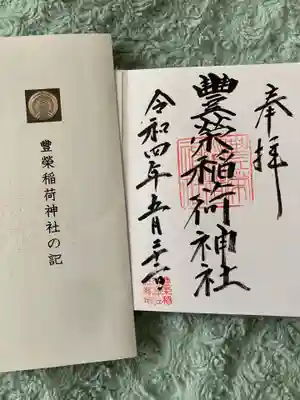 奉拝
豐榮稲荷神社
令和四年五月二十二日
豊榮稲荷神社の記